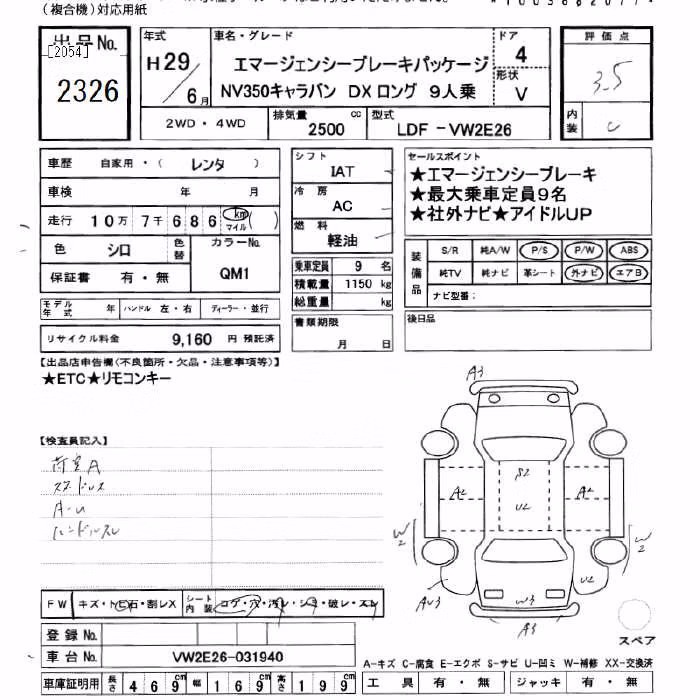 (複合機)対応用紙
出品 No.
[2054]
2326
年式
H29/6月
車名・グレード
エマージェンシーブレーキパッケージ
NV350キャラバン DX ロング 9人乗
ドア
4
形状
V
評価点
3.5
内装
C
2WD・4WD
排気量
2500 cc
型式
LDF-VW2E26
車歴 自家用・( レンタ )
車検 年 月
走行 10万 7千 6 8 6 km マイル ( )
色 シロ 色替
カラーNo.
QM1
保証書 有・無
モデル年式 年 ハンドル 左・右 ディーラー・並行
リサイクル料金 9,160 円 預託済
シフト
IAT
冷房
AC
燃料
軽油
乗車定員 9 名
積載量 1150 kg
総重量 kg
書類期限
月 日
セールスポイント
★エマージェンシーブレーキ
★最大乗車定員9名
★社外ナビ★アイドルUP
装備品
S/R 純A/W P/S P/W ABS
純TV 純ナビ 革シート 外ナビ エアB
ナビ型番:
後日品
【出品店申告欄(不良箇所・欠品・注意事項等)】
★ETC★リモコンキー
【検査員記入】
荷室A
スタッドレス
A-U
ハンドルスレ
A3
S2
A2
U2
A2
W2
W2
AU3
U2
W3
A3
スペア
FW キズ・トビ石・割レX シート内装 コゲ・穴・汚レ・シミ・破レ・スレ
登録 No.
車台 No. VW2E26-031940
A-キズ C-腐食 E-エクボ S-サビ U-凹ミ W-補修 XX-交換済
車庫証明用 長さ 469cm 幅 169cm 高さ 199cm
工具 有・無 ジャッキ 有・無